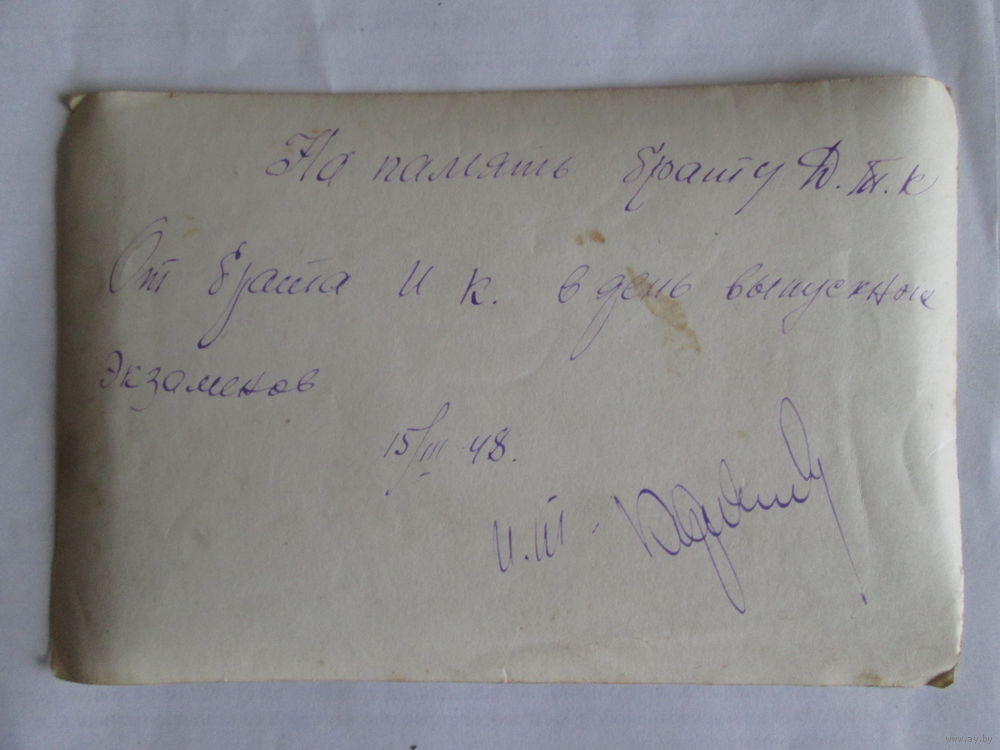 На память брату Д. Т. К
От брата И К. в день выпускных
экзаменов
15/III 48.
И. Т.
www.ay.by